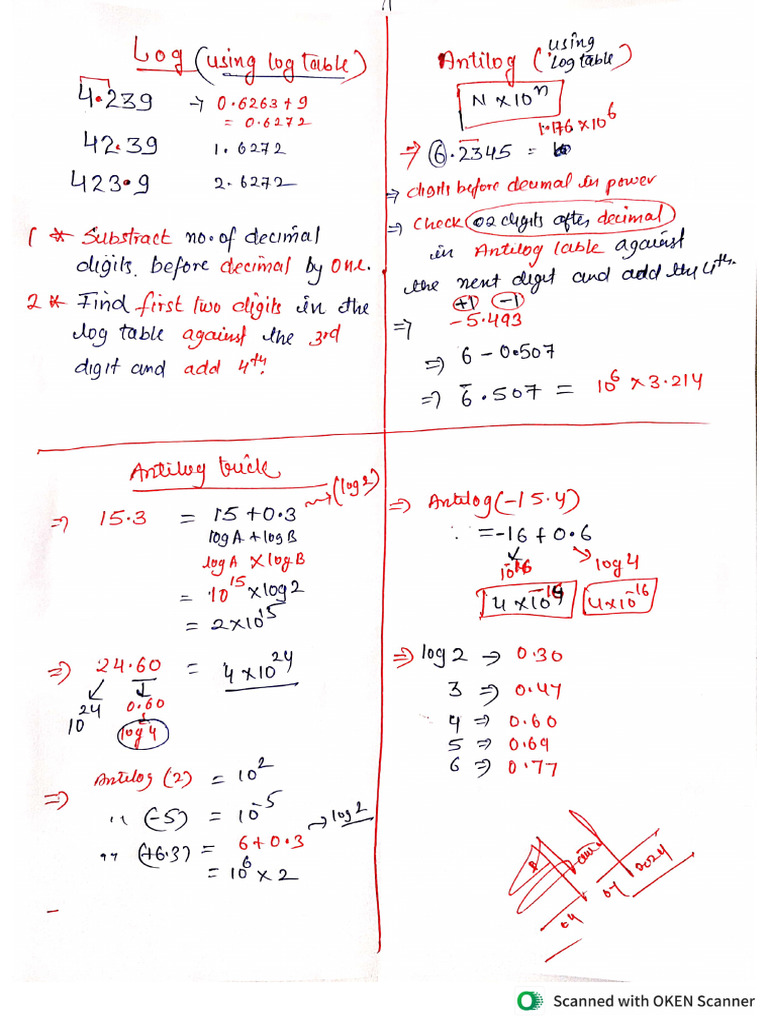 Log (using log table)
4.239 → 0.6263 + 9
= 0.6272
42.39 1.6272
423.9 2.6272
1 * Substract no. of decimal
digits. before decimal by one.
2 * Find first two digits in the
log table against the 3rd
digit and add 4th.
Antilog (using log table)
N × 10ⁿ
1.176 × 10⁶
→ 6.2345 =
→ digits before decimal in power
⇒ Check 02 digits after decimal
in Antilog table against
the next digit and add the 4th.
+1 -1
⇒ -5.493
⇒ 6 - 0.507
⇒ 6̄.507 = 10⁶ × 3.214
Antilog trick
⇒ 15.3 = 15 + 0.3 → (log 2)
log A + log B
log A × log B
= 10¹⁵ × log 2
= 2 × 10¹⁵
⇒ 24.60 = 4 × 10²⁴
10²⁴ 0.60
log 4
⇒ Antilog (2) = 10²
" (-5) = 10⁻⁵
" (+6.3) = 6 + 0.3 → log 2
= 10⁶ × 2
⇒ Antilog (-15.4)
∵ = -16 + 0.6
10⁻¹⁶ log 4
4 × 10⁻¹⁶ 4 × 10⁻¹⁶
⇒ log 2 → 0.30
3 ⇒ 0.47
4 ⇒ 0.60
5 ⇒ 0.69
6 ⇒ 0.77
Scanned with OKEN Scanner